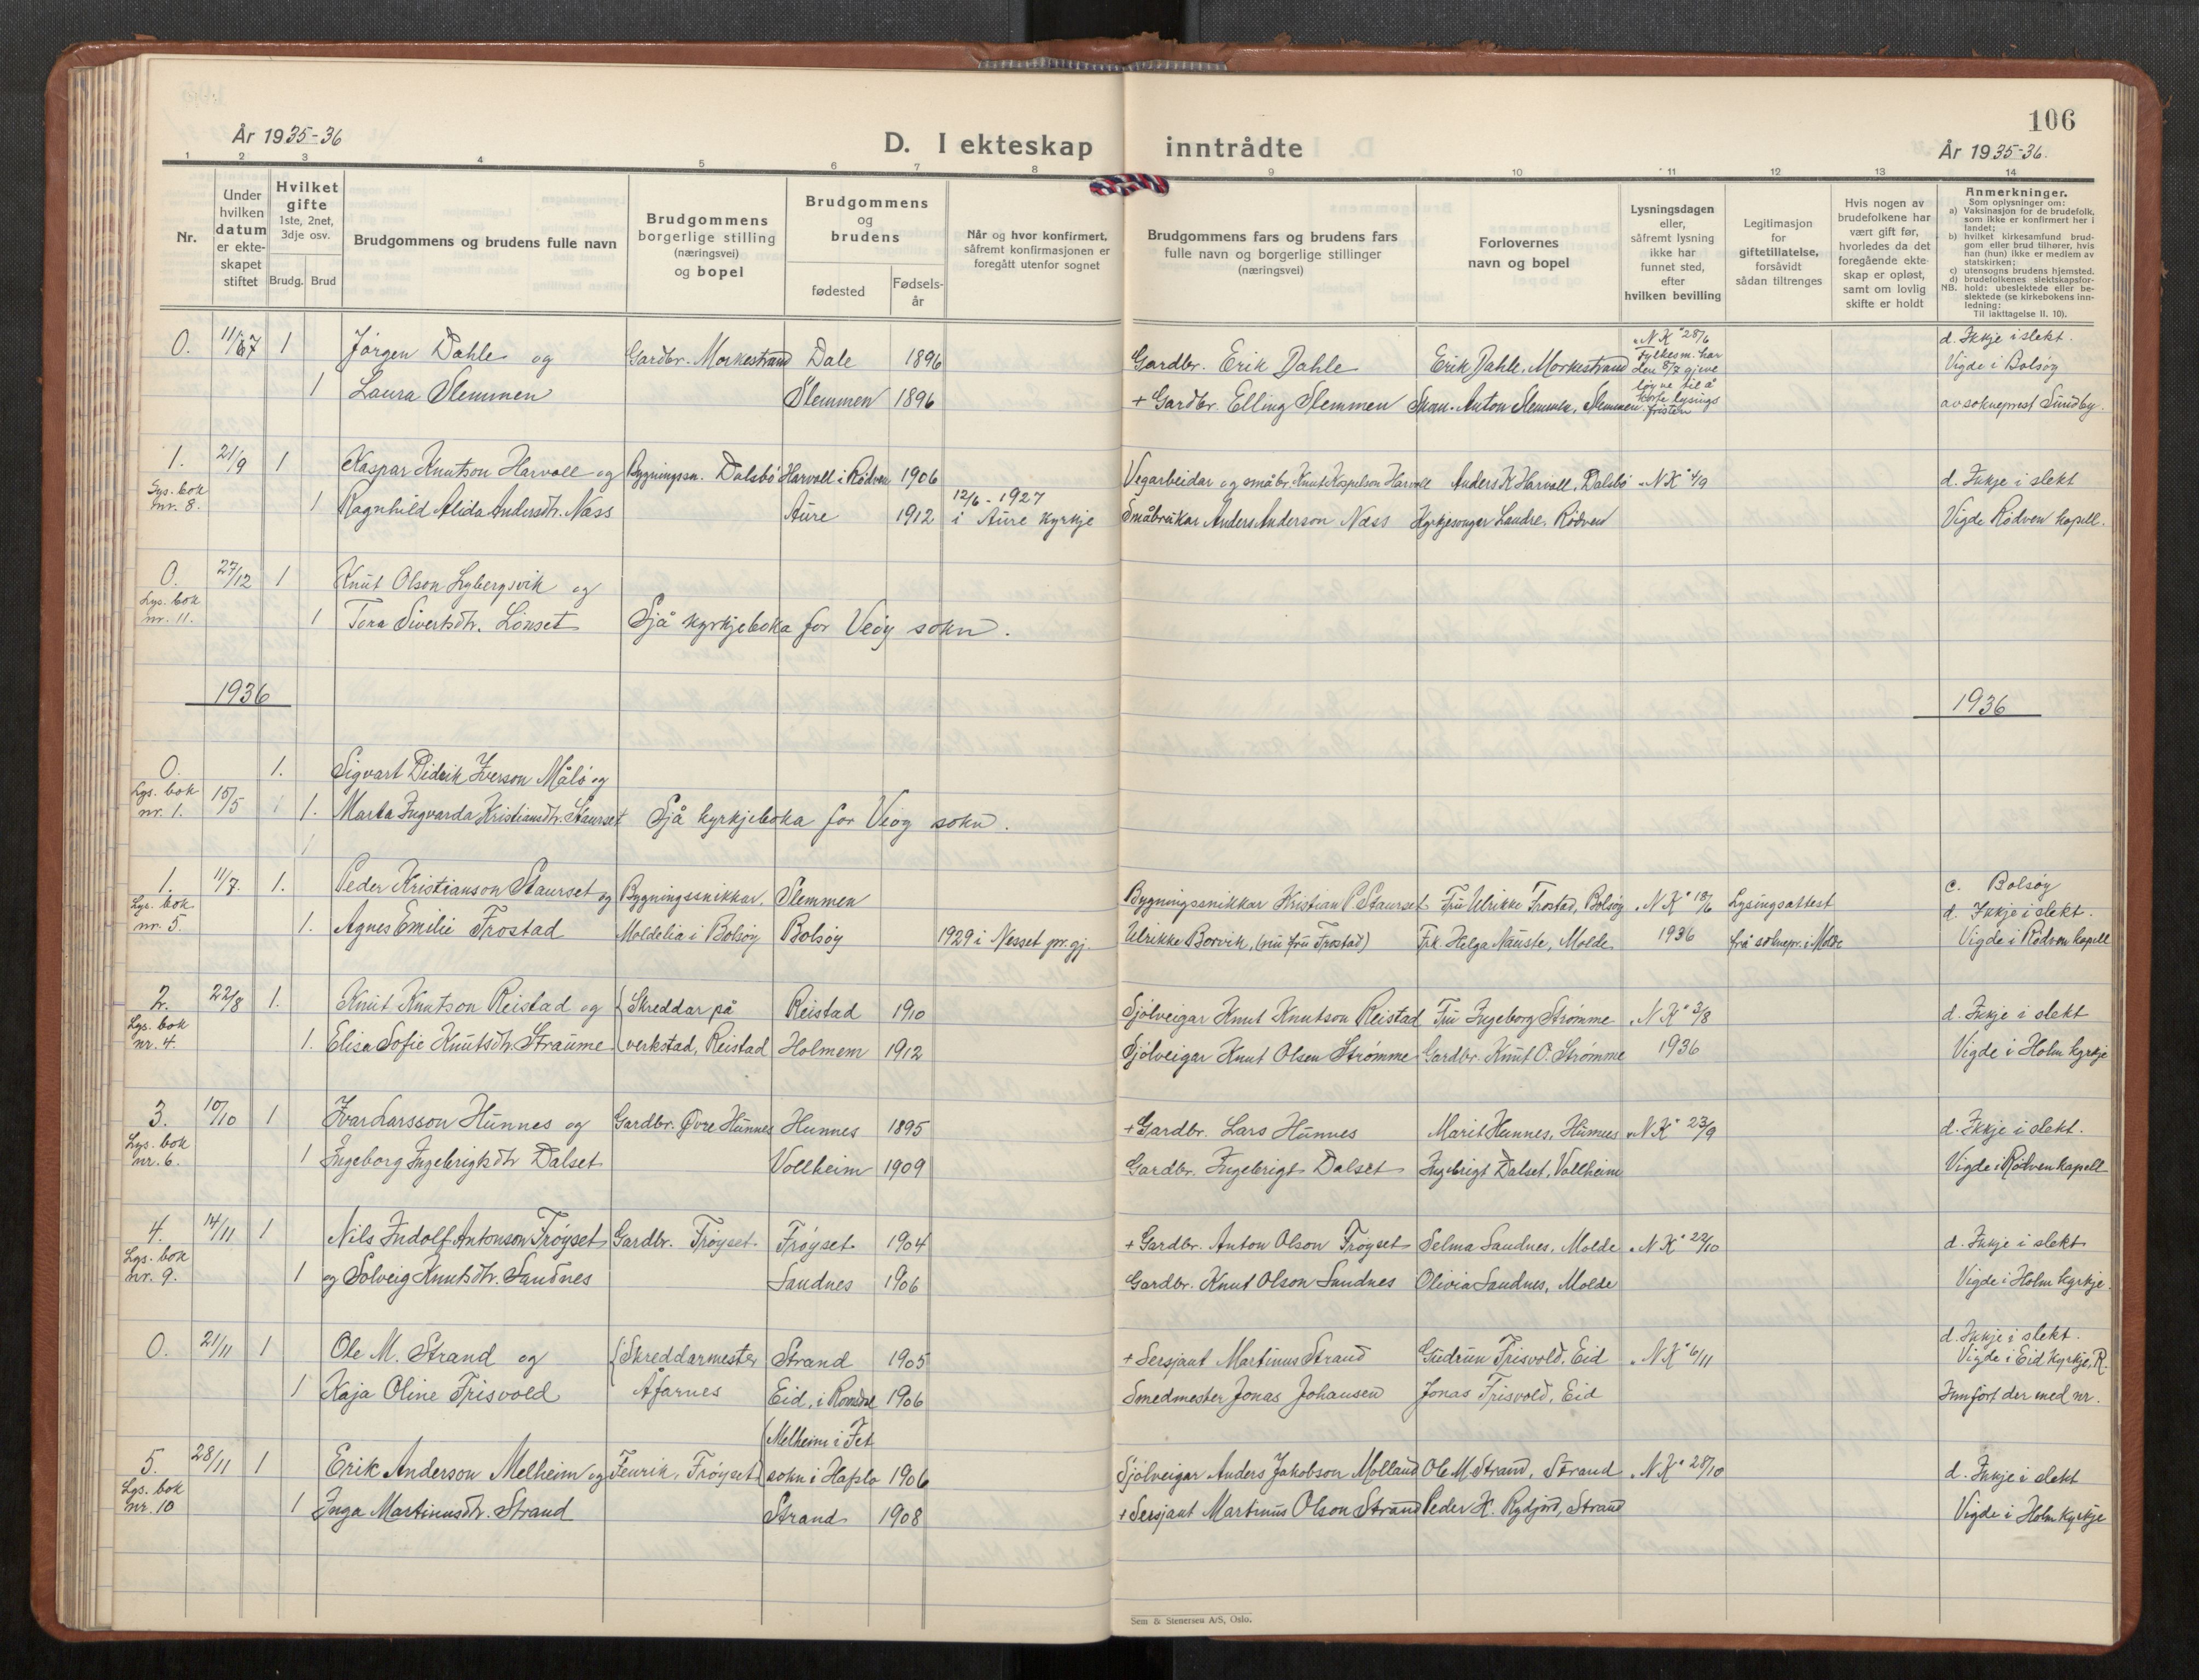 106
År 1935-36
D. I ekteskap inntrådte
År 1935-36.
1 2 3 4 5 6 7 8 9 10 11 12 13 14
Nr.
Under hvilken datum er ekteskapet stiftet
Hvilket gifte
1ste, 2net, 3dje osv.
Brudg. Brud
Brudgommens og brudens fulle navn
Brudgommens borgerlige stilling (næringsvei) og bopel
Brudgommens og brudens
fødested
Fødselsår
Når og hvor konfirmert, såfremt konfirmasjonen er foregått utenfor sognet
Brudgommens fars og brudens fars fulle navn og borgerlige stillinger (næringsvei)
Forlovernes navn og bopel
Lysningsdagen eller, såfremt lysning ikke har funnet sted, efter hvilken bevilling
Legitimasjon for giftetillatelse, forsåvidt sådan tiltrenges
Hvis nogen av brudefolkene har vært gift før, hvorledes da det foregående ekteskap er opløst, samt om lovlig skifte er holdt
Anmerkninger.
Som oplysninger om:
a) Vaksinasjon for de brudefolk, som ikke er konfirmert her i landet;
b) hvilket kirkesamfund brudgom eller brud tilhører, hvis han (hun) ikke er medlem av statskirken;
c) utensogns brudens hjemsted.
d) brudefolkenes slektskapsforhold: ubeslektede eller beslektede (se kirkebokens innledning:
NB.
Til iakttagelse II. 10).
0. 1 Jørgen Dahle og Gardbr. Morkestrand Dale 1896 Gardbr. Erik Dahle Erik Dahle, Morkestrand "N K" 28/6 Fylkesm. har den 8/7 gjeve løyve til å korte lysingsfristen d. Ikkje i slekt.
Vigde i Bolsøy
1 Laura Slemmen Slemmen 1896 + Gardbr. Elling Slemmen Anton Slemmen, Slemmen av sokneprest Sundby.
1. 21/9 1 Kaspar Knutson Harvoll og Bygningssn. Dalsbø Harvoll i Rødven 1906 Vegarbeidar og småbr. Knut Harvoll Anders K Harvoll, Dalsbø "N K" 4/9 d. Ikkje i slekt
Lys. bok nr. 8. 1 Ragnhild Alida Andersdtr. Næss Aure 1912 12/6 - 1927 i Aure kyrkje Småbrukar Anders Anderson Næss Kyrkjesongar Landre, Rødven Vigde Rødven kapell.
0. 27/12 1 Knut Olson Lybergsvik og
Lys. bok nr. 11. 1 Tora Sivertsdtr. Lønset Sjå kyrkjeboka for Veøy sokn.
1936 1936
0. 1. Sigvart Didrik Iverson Målø og
Lys. bok nr. 1. 15/5 1. Marta Ingvarda Kristiansdtr. Staurset Sjå kyrkjeboka for Veøy sokn.
1. 11/7. 1. Peder Kristianson Staurset og Bygningssnikkar. Slemmen Bygningssnikkar Kristian P. Staurset Fru Ulrikke Frostad, Bolsøy "N K" 18/6 Lysingsattest c. Bolsøy
d. Ikkje i slekt.
Lys. bok nr. 5. 1. Agnes Emilie Frostad Moldelia i Bolsøy Bolsøy 1929 i Nesset pr.gj. Ulrikke Borvik, (nu fru Frostad) Frk. Helga Nauste, Molde 1936 frå soknepr. i Molde Vigde i Rødven kapell
2. 22/8 1. Knut Knutson Reistad og Skreddar på Reistad 1910 Sjølveigar Knut Knutson Reistad Fru Ingeborg Strømme "N K" 3/8 d. Ikkje i slekt
Lys. bok nr. 4. 1. Elisa Sofie Knutsdtr. Straume verkstad, Reistad Holmem 1912 Sjølveigar Knut Olsen Strømme Gardbr. Knut O. Strømme 1936 Vigde i Holm kyrkje
3. 10/10 1 Ivar Larsson Hunnes og Gardbr. Øvre Hunnes Hunnes 1895 + Gardbr. Lars Hunnes Marit Hunnes, Hunnes "N K" 23/9 d. Ikkje i slekt.
Lys. bok nr. 6. 1 Ingeborg Ingebrigtsdtr Dalset Vollheim 1909 Gardbr. Ingebrigt Dalset Ingebrigt Dalset, Vollheim Vigde i Rødven kapell
4. 14/11 1 Nils Indolf Antonson Frøyset Gardbr. Frøyset. Frøyset 1904 + Gardbr. Anton Olson Frøyset Selma Sandnes, Molde "N K" 22/10 d. Ikkje i slekt
Lys. bok nr. 9. 1 og Solveig Knutsdtr. Sandnes Sandnes 1906 Gardbr. Knut Olson Sandnes Olivia Sandnes, Molde Vigde i Holm kyrkje.
0. 21/11 1 Ole M. Strand og Skreddarmester Strand 1905 + Sersjant Martinus Strand Gudrun Frisvold, Eid "N K" 6/11 d. Ikkje i slekt.
Vigde i Eid kyrkje, R.
1 Kaja Oline Frisvold Åfarnes Eid, i Romsdal 1906 Smedmester Jonas Johansen Jonas Frisvold, Eid Innført der med nr.
5. 28/11 1 Erik Anderson Melheim og Fenrik, Frøyset Melheim i Fet sokn i Hafslo 1906 Sjølveigar Anders Jakobson Molland Ole M. Strand, Strand "N K" 28/10 d. Ikkje i slekt
Lys. bok nr. 10 1 Inga Martinusdtr. Strand Strand 1908 + Sersjant Martinus Olson Strand Peder K. Rydjord, Strand Vigde i Holm kyrkje
Sem & Stenersen A/S, Oslo.